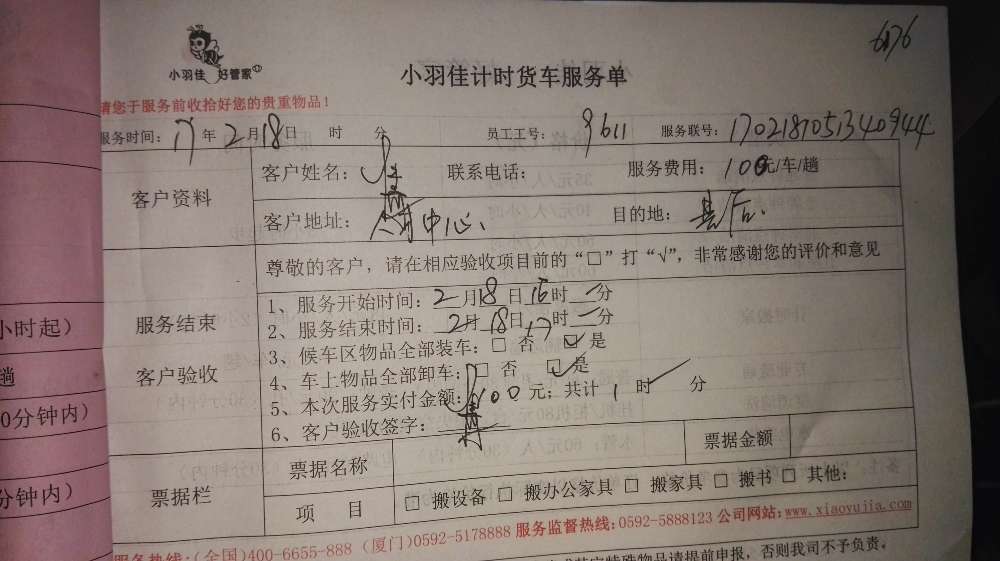 6176
小羽佳 好管家
小羽佳计时货车服务单
请您于服务前收拾好您的贵重物品!
服务时间: 17 年 2 月 18 日 时 分 员工工号: 9611 服务联号: 1702181051340944
客户资料
客户姓名: 联系电话: 服务费用: 100元/车/趟
客户地址: 中心 目的地:
服务结束
客户验收
尊敬的客户，请在相应验收项目前的“□”打“√”，非常感谢您的评价和意见
1、服务开始时间: 2 月 18 日 16 时 分
2、服务结束时间: 2 月 18 日 17 时 分
3、候车区物品全部装车: □ 否 ☑ 是
4、车上物品全部卸车: □ 否 ☑ 是
5、本次服务实付金额: 100 元; 共计 1 时 分
6、客户验收签字:
票据栏
票据名称 票据金额
项 目 □ 搬设备 □ 搬办公家具 □ 搬家具 □ 搬书 □ 其他:
服务热线: (全国)400-6655-888 (厦门)0592-5178888 服务监督热线: 0592-5888123 公司网站: www.xiaoyujia.com
特殊物品请提前申报，否则我司不予负责。
小时起)
趟
0分钟内)
分钟内)